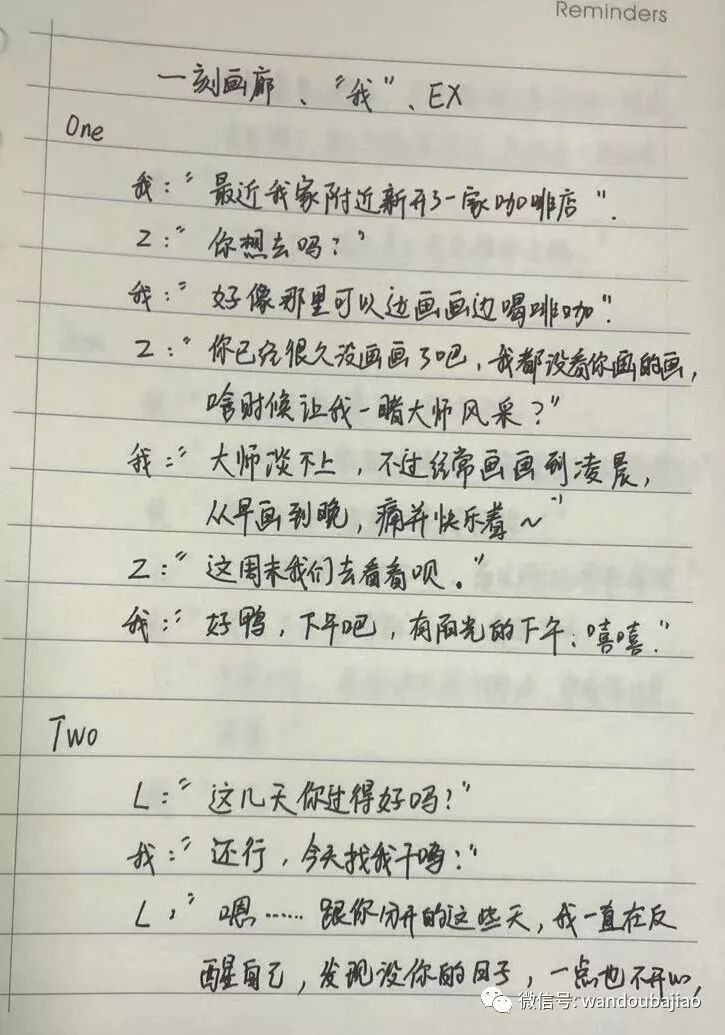 Reminders
一刻画廊、“我”、EX
One
我：“最近我家附近新开了一家咖啡店”.
Z：“你想去吗？”
我：“好像那里可以边画画边喝啡咖”.
Z：“你已经很久没画画了吧，我都没看你画的画，
啥时候让我一睹大师风采？”
我：“大师谈不上，不过经常画画到凌晨，
从早画到晚，痛并快乐着～”
Z：“这周末我们去看看呗。”
我：“好鸭，下午吧，有阳光的下午；嘻嘻.”
Two
L：“这几天你过得好吗？”
我：“还行，今天找我干嘛？”
L：“嗯……跟你分开的这些天，我一直在反
醒自己，发现没你的日子，一点也不开心，
微信号: wandoubajiao